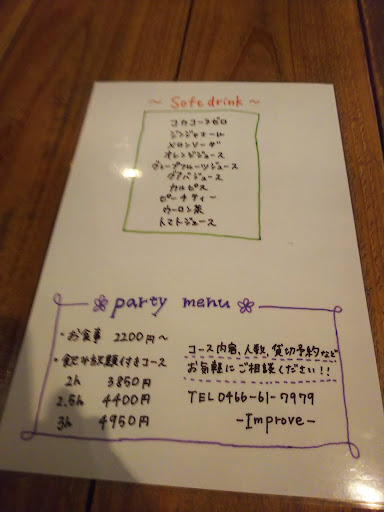 ~ Safe drink ~
コカコーラゼロ
ジンジャエール
メロンソーダ
オレンジジュース
グレープフルーツジュース
グアバジュース
カルピス
ピーチティー
ウーロン茶
トマトジュース
party menu
・お食事 2200円〜
・飲み放題付きコース
2h 3850円
2.5h 4400円
3h 4950円
コース内容、人数、貸切予約など
お気軽にご相談ください!!
TEL 0466-61-7979
-Improve-